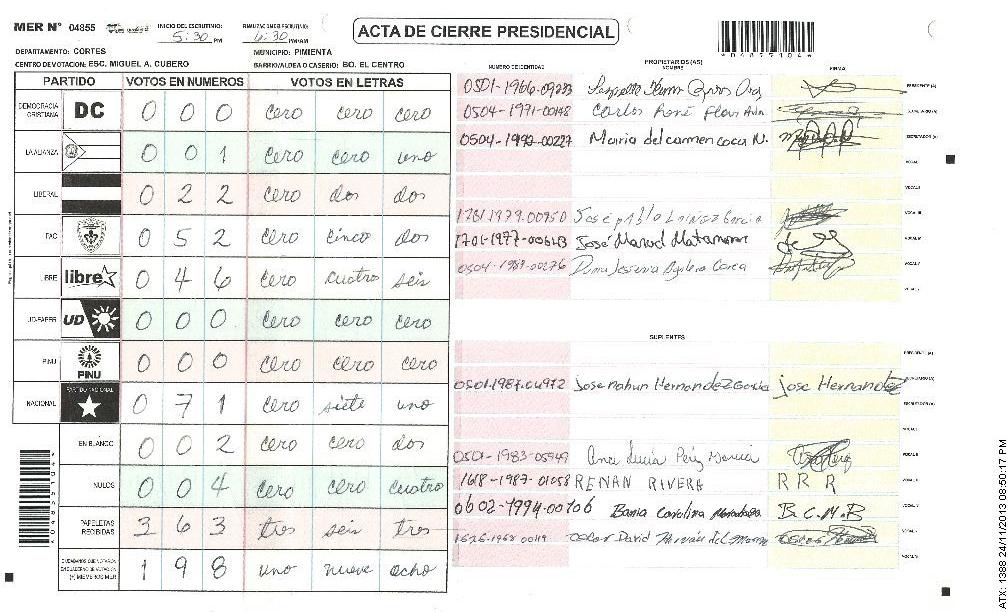 MER Nº 04855
INICIO DEL ESCRUTINIO: 5:30 PM
FINALIZACION DEL ESCRUTINIO: 6:30 PM/AM
ACTA DE CIERRE PRESIDENCIAL
*04855104*
DEPARTAMENTO: CORTES
MUNICIPIO: PIMIENTA
CENTRO DE VOTACION: ESC. MIGUEL A. CUBERO
BARRIO/ALDEA O CASERIO: BO. EL CENTRO
PARTIDO VOTOS EN NUMEROS VOTOS EN LETRAS
DEMOCRACIA CRISTIANA DC 0 0 0 cero cero cero
LA ALIANZA 0 0 1 cero cero uno
LIBERAL 0 2 2 cero dos dos
PAC 0 5 2 cero cinco dos
LIBRE libre 0 4 6 cero cuatro seis
UD-FAPER UD 0 0 0 cero cero cero
PINU PINU 0 0 0 cero cero cero
NACIONAL PARTIDO NACIONAL 0 7 1 cero siete uno
EN BLANCO 0 0 2 cero cero dos
NULOS 0 0 4 cero cero cuatro
PAPELETAS RECIBIDAS 3 6 3 tres seis tres
CIUDADANOS QUE VOTARON EN CUADERNO DE VOTACION (+) MIEMBROS MER 1 9 8 uno nueve ocho
PROPIETARIOS (AS)
NUMERO DE IDENTIDAD NOMBRE FIRMA
0501-1966-09233 PRESIDENTE (A)
0504-1971-00148 Carlos René
0504-1990-00227 Maria del carmen coca N. ESCRUTADOR (A)
VOCAL I
VOCAL II
1701-1979-00950 José pablo VOCAL III
1701-1977-00643 José Manuel Matamoros VOCAL IV
0504-1987-00276 VOCAL V
SUPLENTES
PRESIDENTE (A)
0501-1987-04972 Jose nahun Hernandez Garcia jose Hernandez
ESCRUTADOR (A)
VOCAL I
0501-1983-05949 Ana Lucia VOCAL II
1618-1987-01058 RENAN RIVERA R R R
0602-1994-00706 Carolina B.C.M.B
Oscar David
ATX: 1388 24/11/2013 08:50:17 PM